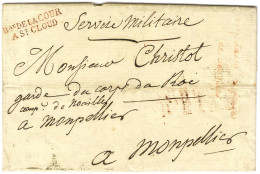 Bau DE LA COUR
A St CLOUD
Service Militaire
Monsieur Christol
garde du corps du Roi
comp.e de Noailles
a Monpellier
a Monpellier